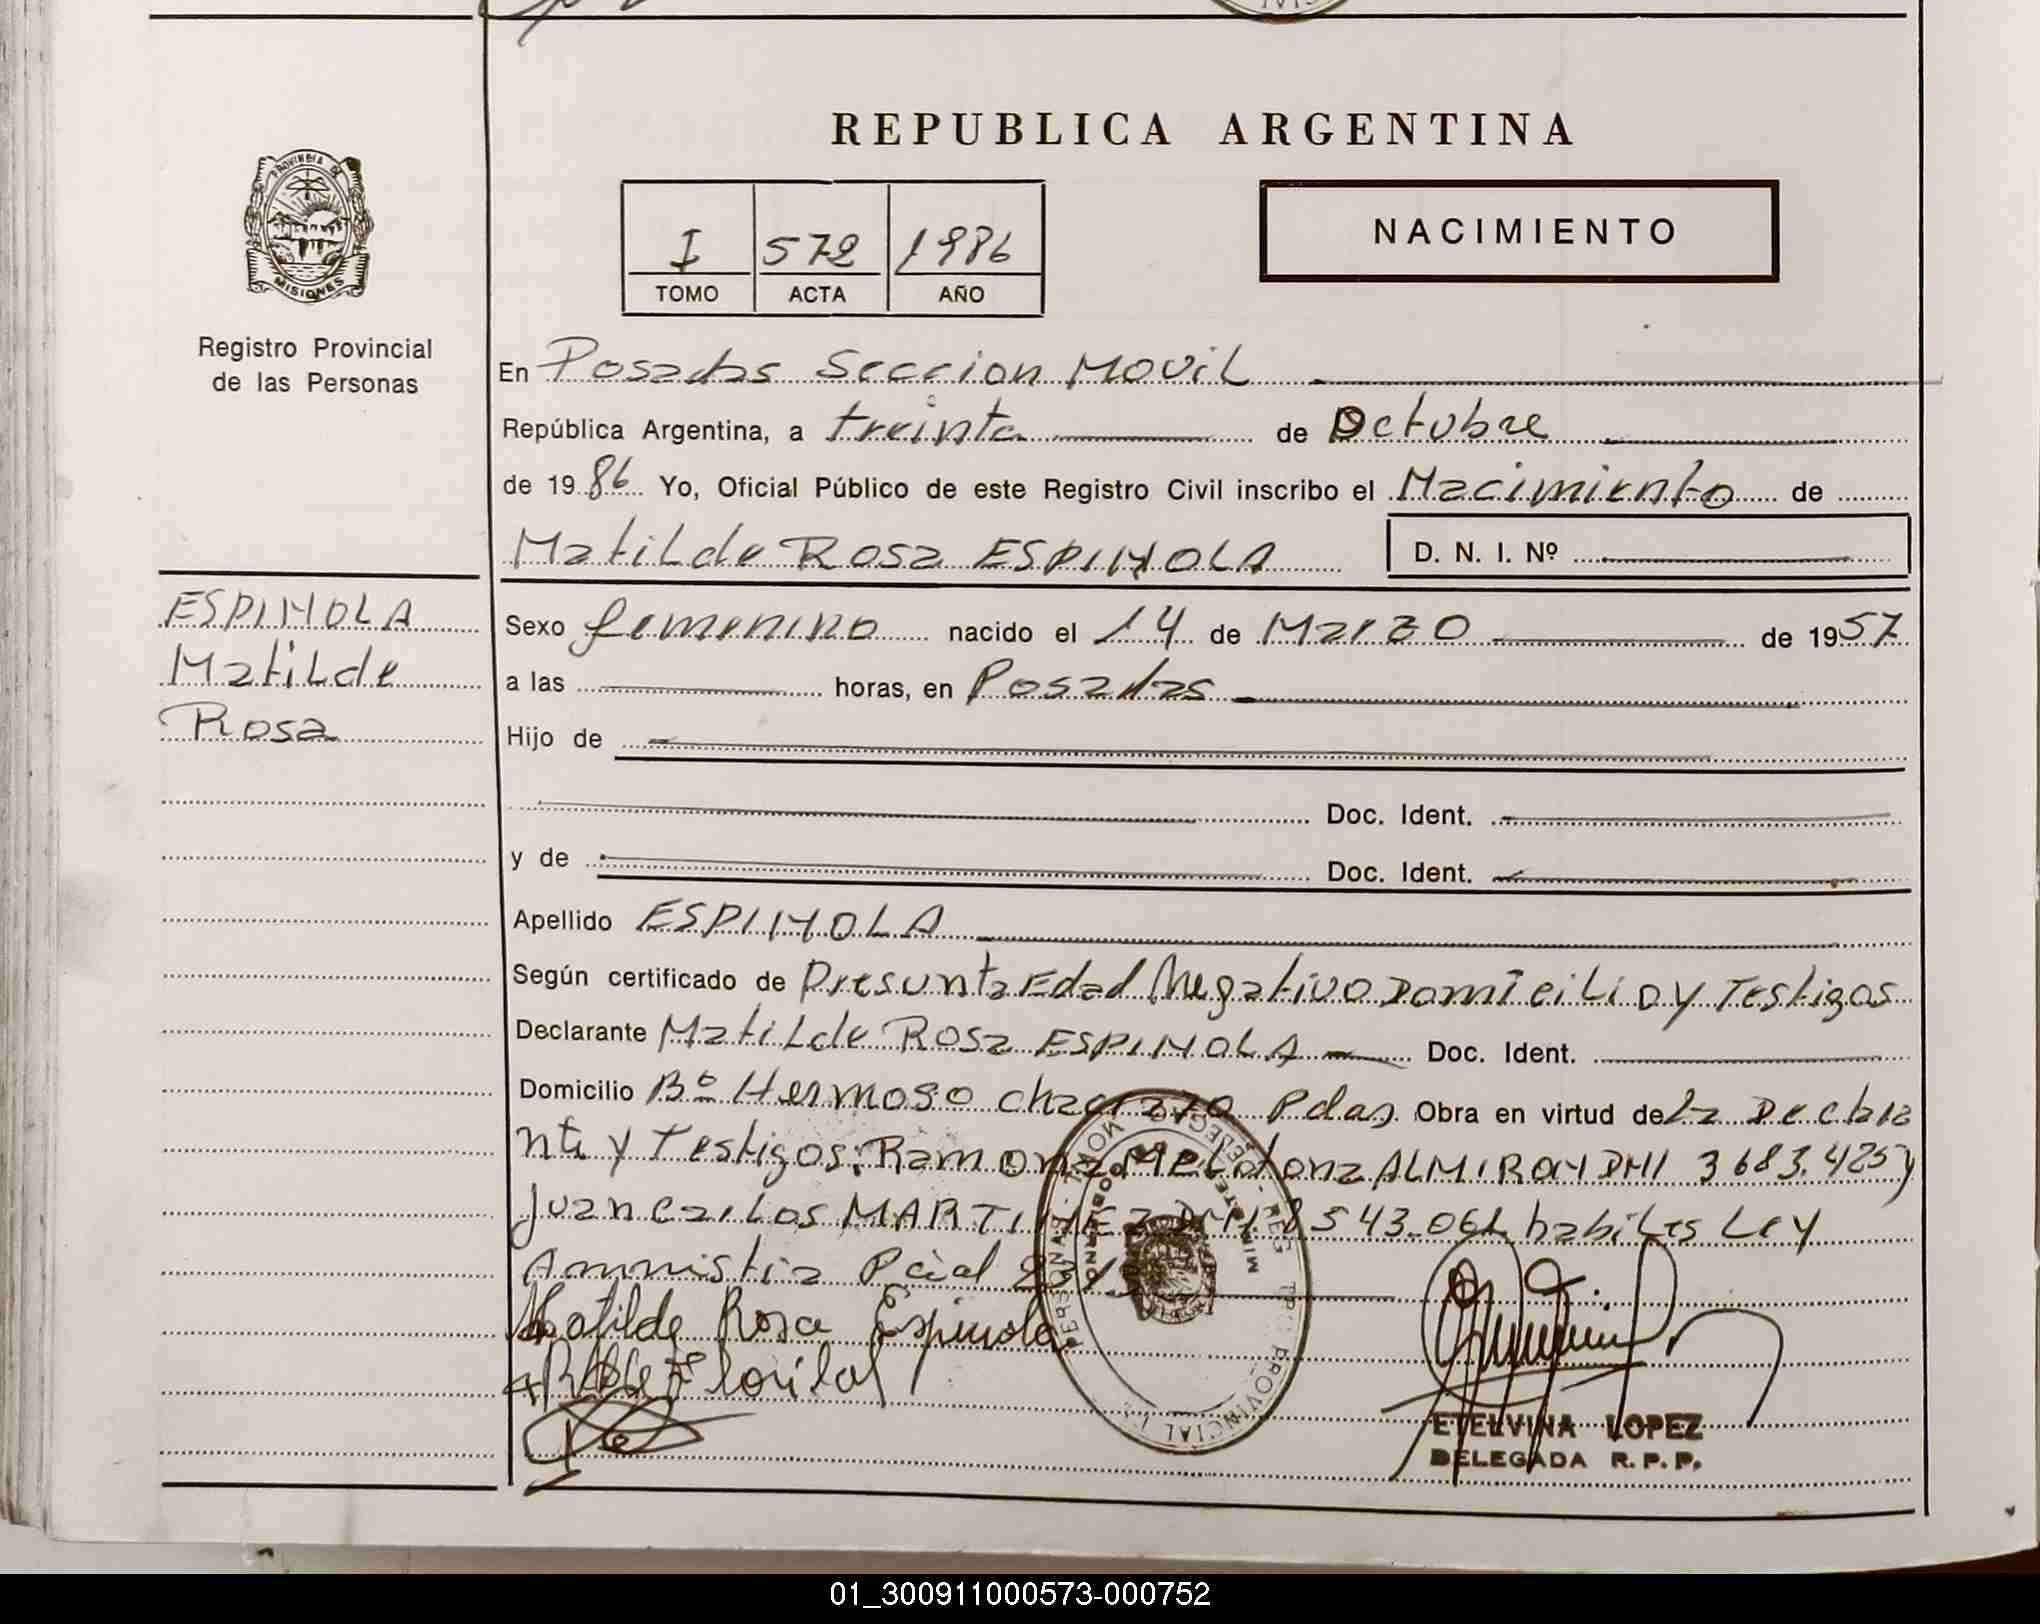 REPUBLICA ARGENTINA
PROVINCIA DE
MISIONES
I 572 1986
TOMO ACTA AÑO
NACIMIENTO
Registro Provincial
de las Personas
En Posadas Seccion Movil
República Argentina, a treinta de Octubre
de 1986 Yo, Oficial Público de este Registro Civil inscribo el Nacimiento de
Matilde Rosa ESPINOLA D. N. I. Nº
ESPINOLA
Matilde
Rosa
Sexo femenino nacido el 14 de Marzo de 1957
a las horas, en Posadas
Hijo de
Doc. Ident.
y de Doc. Ident.
Apellido ESPINOLA
Según certificado de Presunta Edad Negativo Domicilio y Testigos
Declarante Matilde Rosa ESPINOLA Doc. Ident.
Domicilio Bº Hermoso chacrayo Pdas Obra en virtud de La Declara
nte y Testigos: Ramona ALMIRON DNI 3683.425 y
Juan Carlos MARTINEZ DNI 8543.061 habiles Ley
Amnistia Pcial
Matilde Rosa Espinola
ETELVINA LOPEZ
DELEGADA R.P.P.
01_300911000573-000752